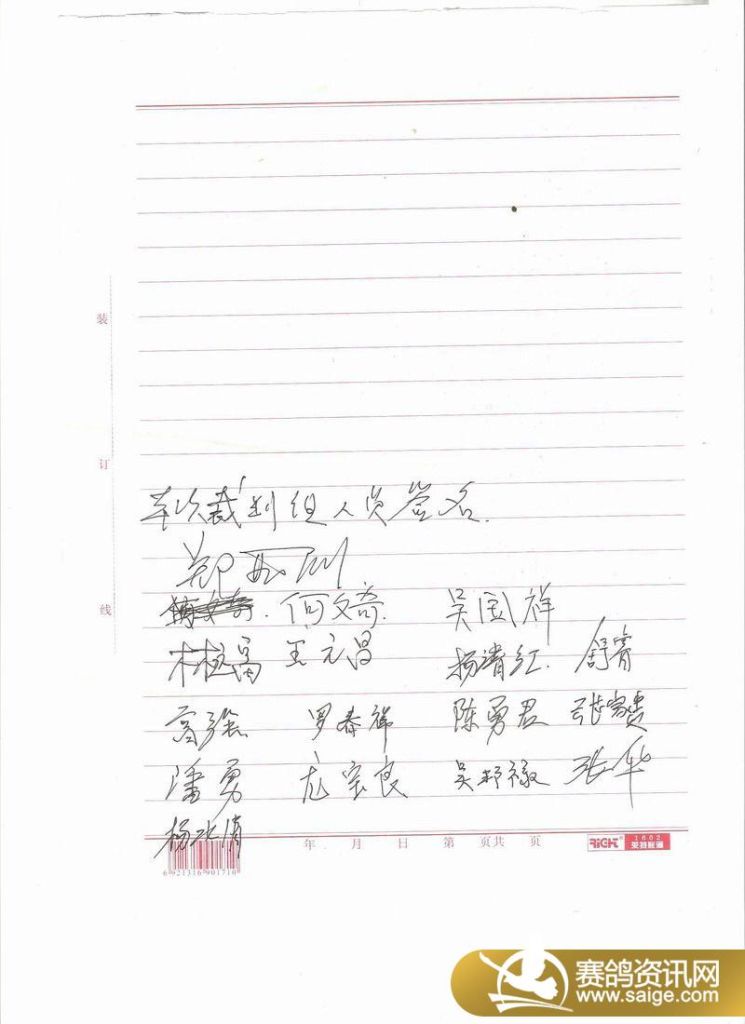 装
订
线
本次裁判组人员签名.
何文奇. 吴国祥
林植富 王元昌 杨清红. 舒青
高强 罗泰祥 陈勇君 张家贵
潘勇 龙宗良 张华
杨冰清
年 月 日 第 页共 页
RiGHT® 1602
6921316901710
赛鸽资讯网
www.saige.com